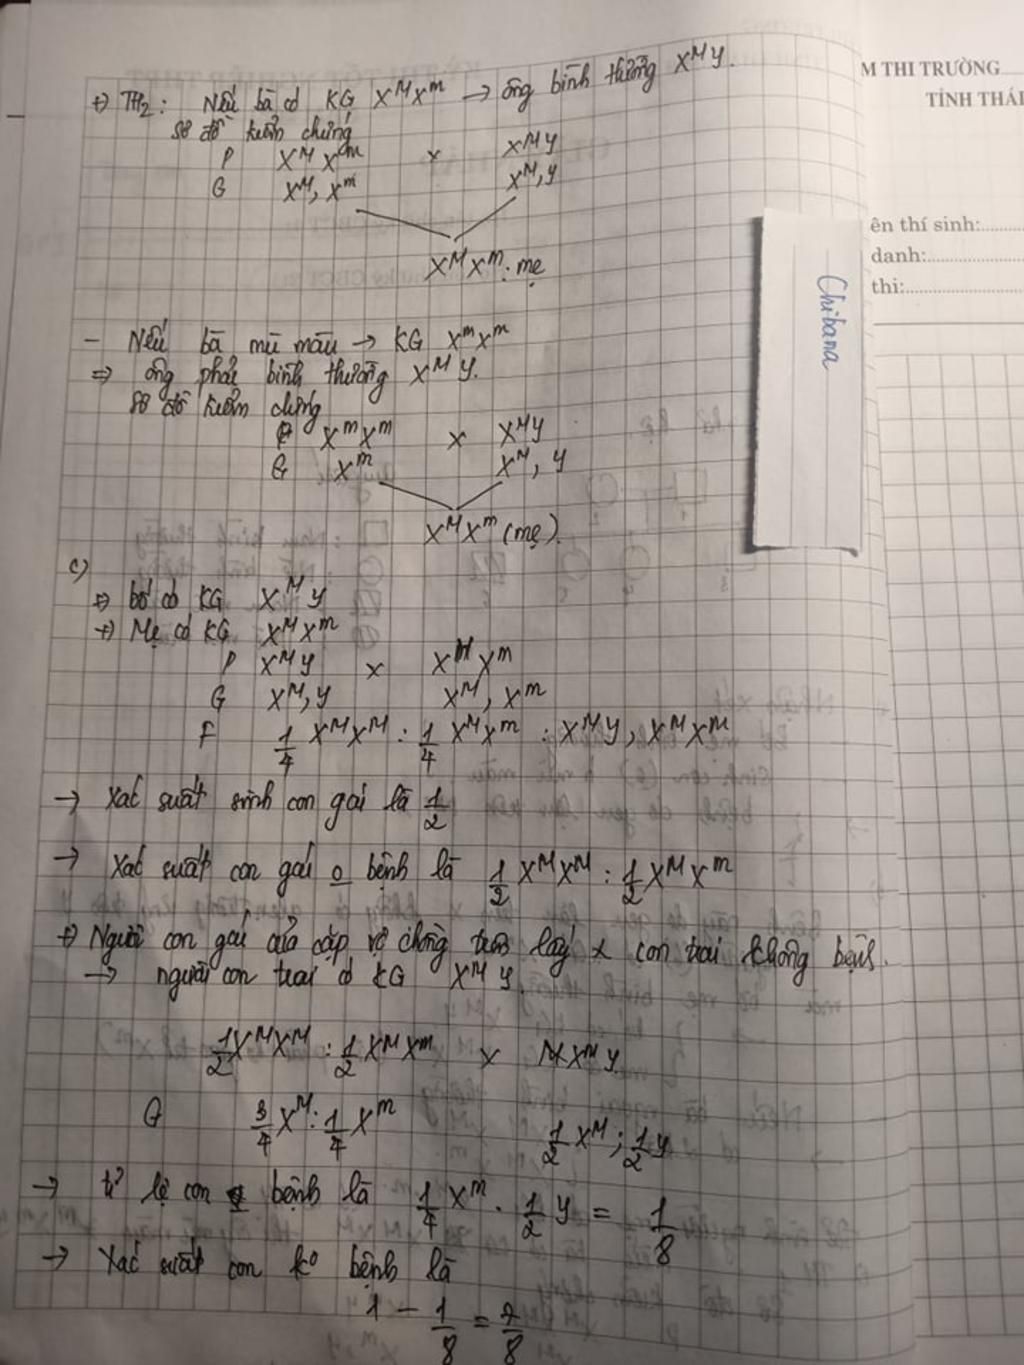 +) TH2: Nếu bà có KG X^M X^m → ông bình thường X^M Y.
sơ đồ kiểm chứng
P X^M X^m x X^M Y
G X^M, X^m X^M, Y
X^M X^m : mẹ
- Nếu bà mù màu → KG X^m X^m
⇒ ông phải bình thường X^M Y.
sơ đồ kiểm chứng
P X^m X^m x X^M Y
G X^m X^M, Y
X^M X^m (mẹ).
c)
+) bố có KG X^M Y
+) Mẹ có KG X^M X^m
P X^M Y x X^M X^m
G X^M, Y X^M, X^m
F 1/4 X^M X^M : 1/4 X^M X^m : X^M Y, X^M X^M
→ Xác suất sinh con gái là 1/2
→ Xác suất con gái o bệnh là 1/2 X^M X^M : 1/2 X^M X^m
+) Người con gái của cặp vợ chồng trên lấy x con trai không bệnh.
→ người con trai có KG X^M Y.
1/2 X^M X^M : 1/2 X^M X^m x X^M Y
G 3/4 X^M : 1/4 X^m 1/2 X^M ; 1/2 Y
→ tỉ lệ con bệnh là 1/4 X^m . 1/2 Y = 1/8
→ Xác suất con ko bệnh là
1 - 1/8 = 7/8
Chibana
M THI TRƯỜNG
TỈNH THÁI
ên thí sinh:
danh:
thi: